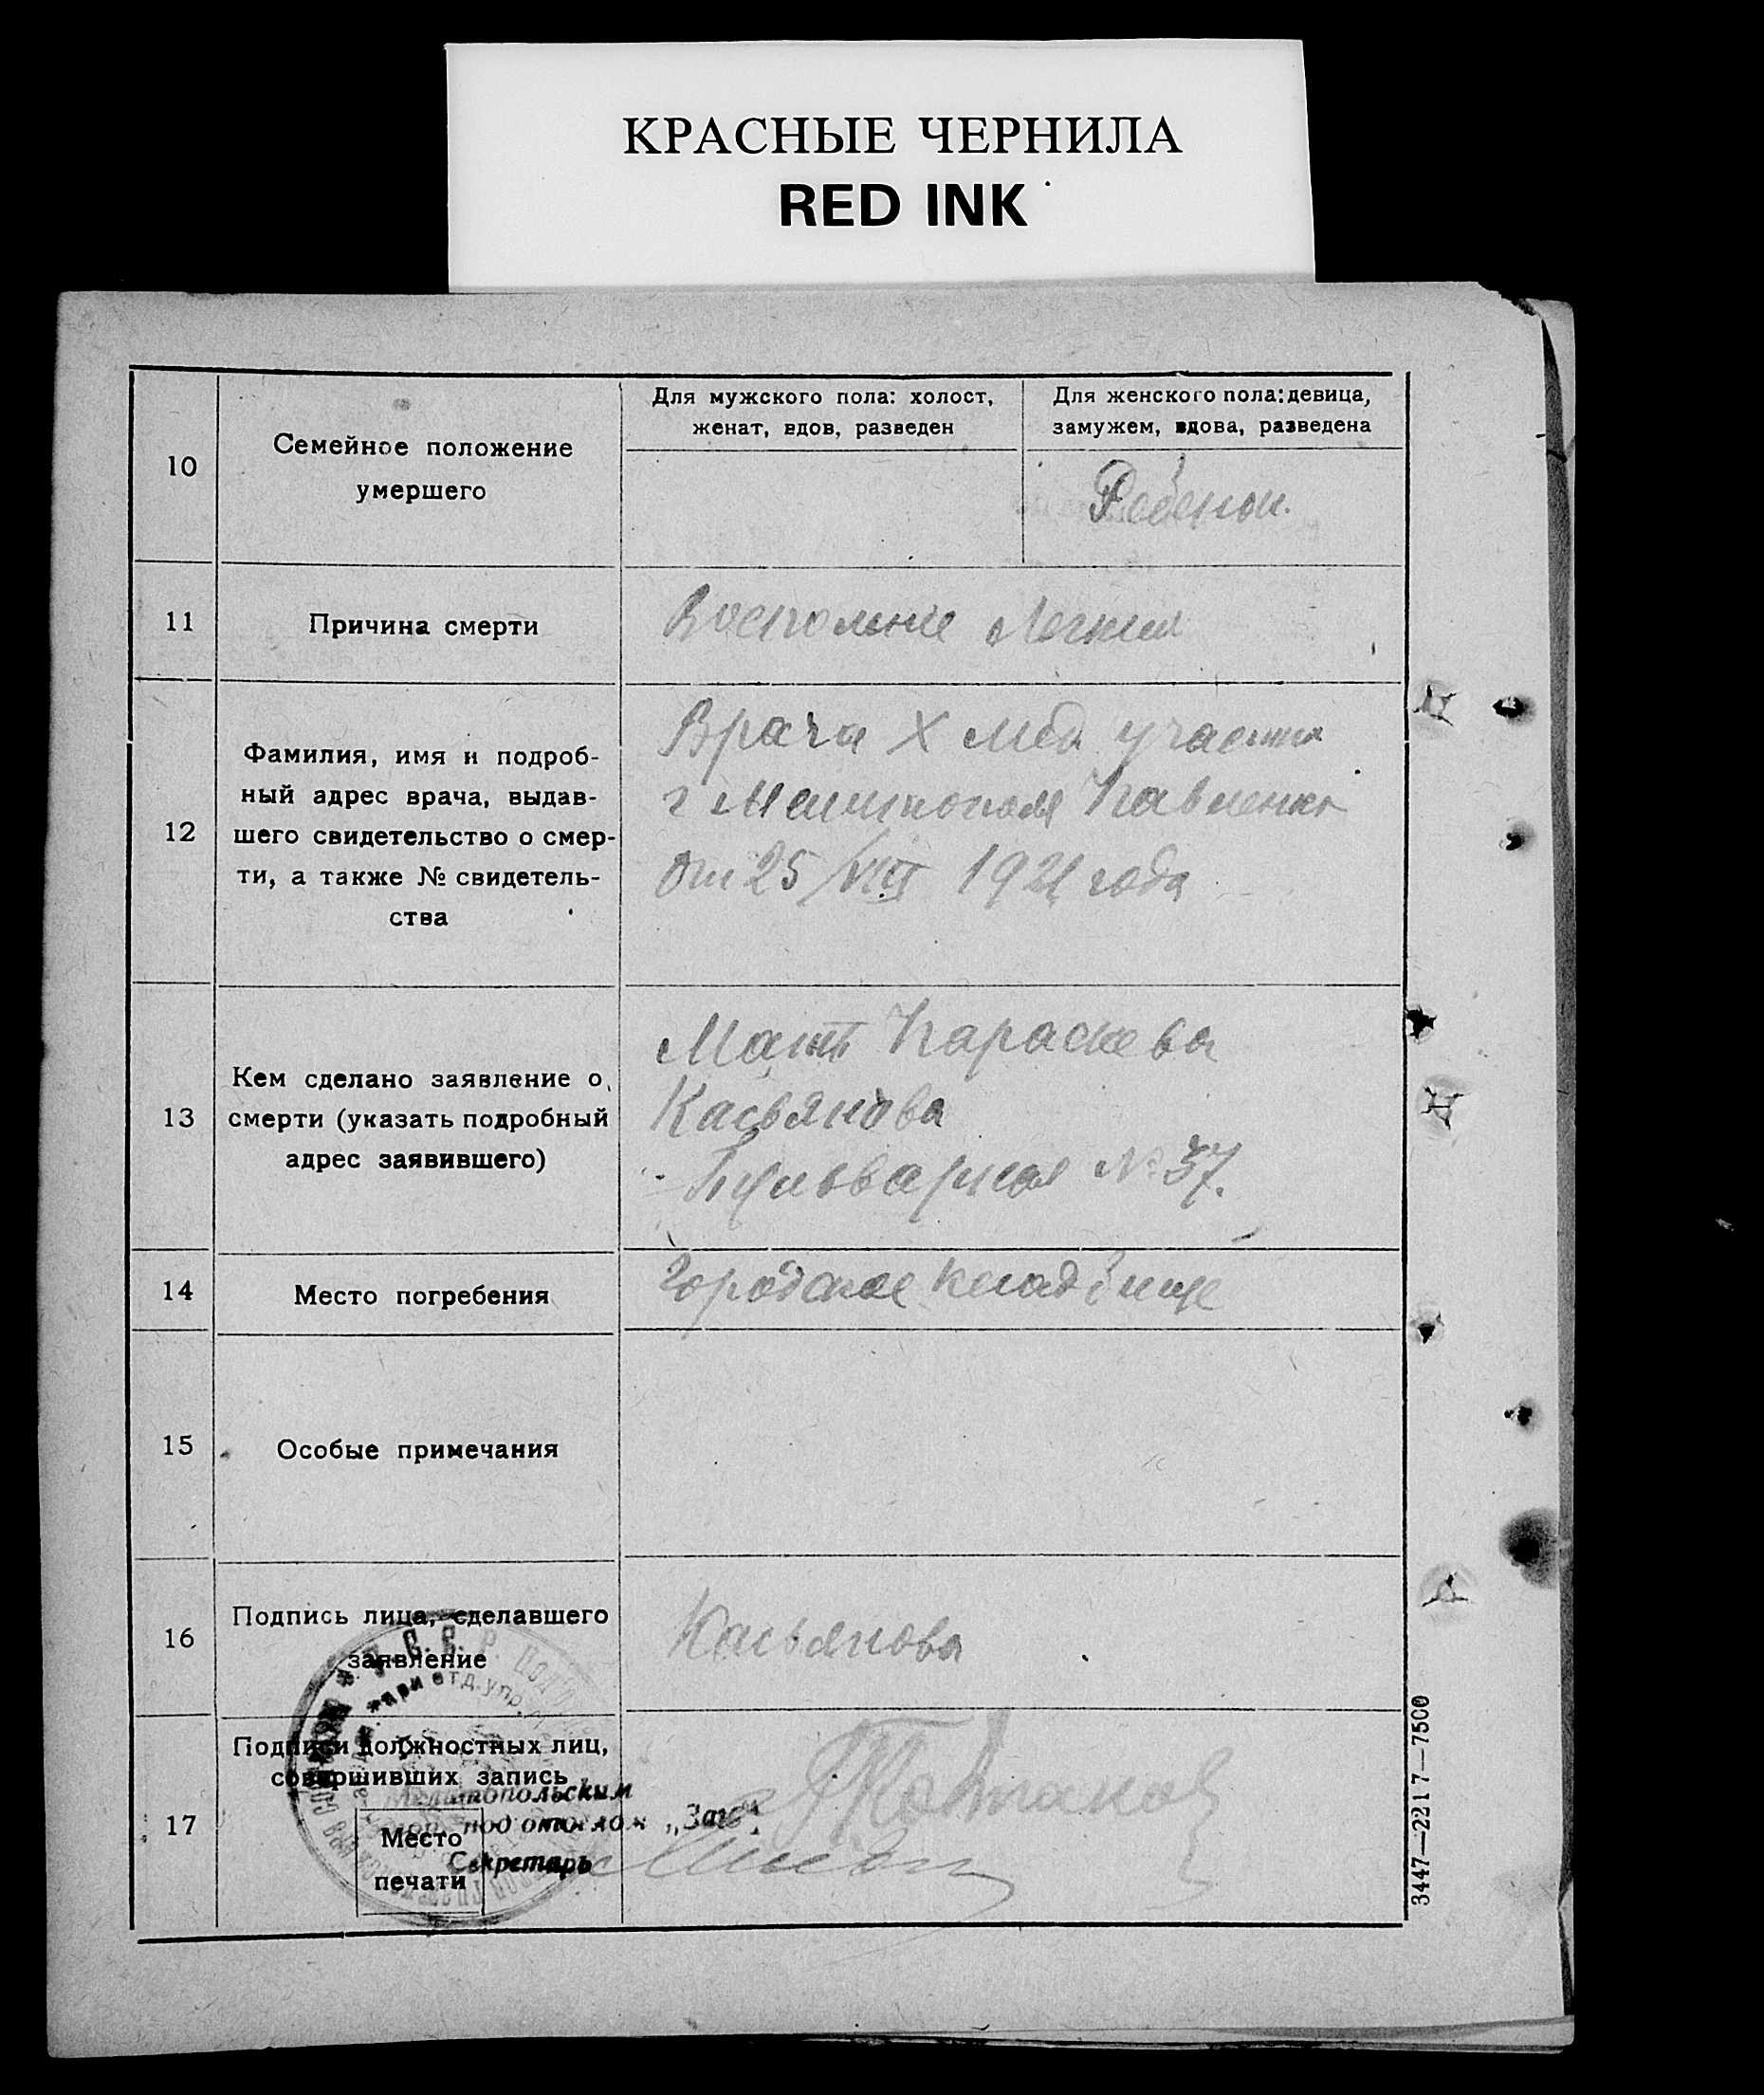 КРАСНЫЕ ЧЕРНИЛА
RED INK
10
Семейное положение
умершего
Для мужского пола: холост,
женат, вдов, разведен
Для женского пола: девица,
замужем, вдова, разведена
Ребенок.
11
Причина смерти
Воспаление Легких
12
Фамилия, имя и подроб-
ный адрес врача, выдав-
шего свидетельство о смер-
ти, а также № свидетель-
ства
Врача X мед участка
г Мелитополя Павленко
от 25/VIII 1921 года
13
Кем сделано заявление о
смерти (указать подробный
адрес заявившего)
Мать Параскева
Касьянова
Бульварная № 37.
14
Место погребения
Городское кладбище
15
Особые примечания
16
Подпись лица, сделавшего
заявление
Касьянова
17
Подписи должностных лиц,
совершивших запись
Мелитопольским
под отделом „Загс“
Секретарь
Место
печати
3447—2217—7500